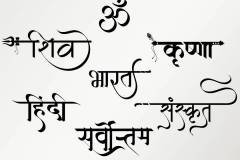 ॐ
शिव कृष्णा
भारत
हिंदी संस्कृत
सर्वोत्तम